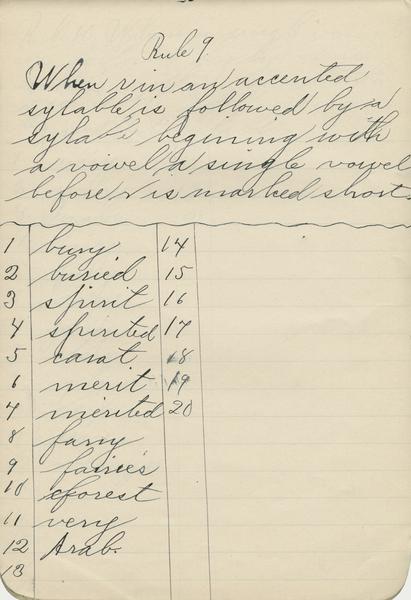 Rule 9.
When r in an accented
sylable is followed by a
sylable begining with
a vowel a single vowel
before r is marked short.
1 bury 14
2 buried 15
3 spirit 16
4 spirited 17
5 carat 18
6 merit 19
7 merited 20
8 fairy
9 fairies
10 forest
11 very
12 Arab.
13